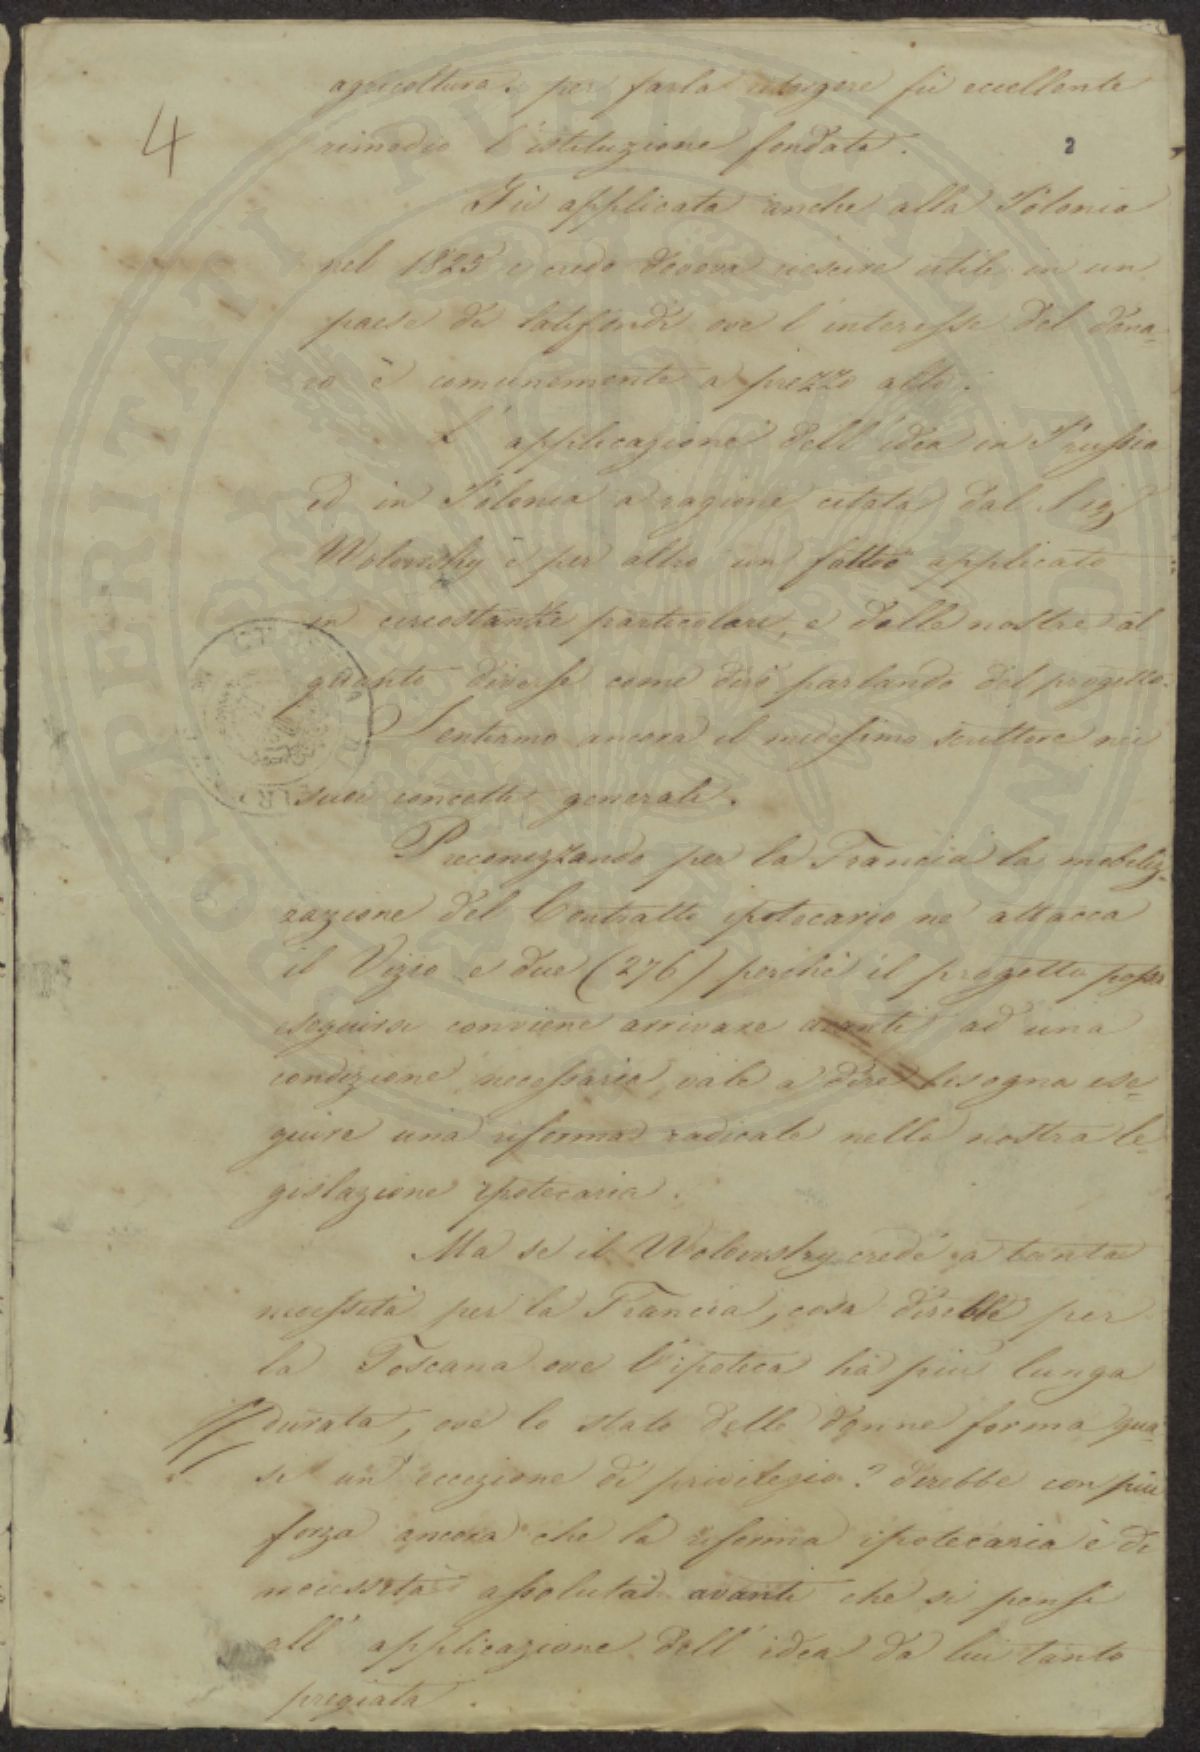 agricoltura. per farla risorgere fù eccellente
4
rimedio l'istituzione fondata.
2
Fù applicata anche alla Polonia
nel 1825 e credo doveva riescire utile in un
paese di latifondi ove l'interesse del dena-
ro è comunemente a prezzo alto.
L'applicazione dell'idea in Prussia
ed in Polonia a ragione citata dal Sig
Wolowsky è per altro un fatto applicato
in circostanze particolari, e dalle nostre al
quanto diverse come dirò parlando del progetto.
Sentiamo ancora il medesimo scrittore nei
suoi concetti generali.
Preconizzando per la Francia la mobiliz-
zazione del Contratto ipotecario ne attacca
il Vizio e dice (276) perchè il progetto possa
eseguirsi conviene arrivare avanti ad una
condizione necessaria, vale a dire bisogna ese-
guire una riforma radicale nella nostra le-
gislazione ipotecaria.
Ma se il Wolowsky crede a tanta
necessità per la Francia, cosa direbbe per
la Toscana ove l'ipoteca ha più lunga
durata, ove lo stato delle donne forma qua-
si un'eccezione di privilegio? direbbe con più
forza ancora che la riforma ipotecaria è di
necessità assoluta avanti che si pensi
all'applicazione dell'idea da lui tanto
pregiata.
PROSPERITATI PUBLICAE